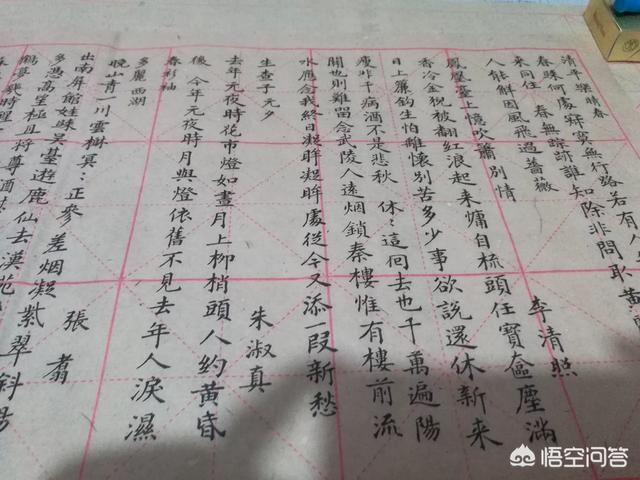 清平樂晴春
春歸何處寂寞無行路若有人
來同住 春無蹤跡誰知除非問取黃
人能解因風飛過薔薇
鳳凰臺上憶吹簫別情 李清照
香冷金猊被翻紅浪起來慵自梳頭任寶奩塵滿
日上簾鈎生怕離懷別苦多少事欲說還休新來
瘦非干病酒不是悲秋 休:這回去也千萬遍陽
關也則難留念武陵人遠烟鎖秦樓惟有樓前流
水應念我終日凝眸凝眸處從今又添一段新愁
生查子元夕 朱淑真
去年元夜時花市燈如晝月上柳梢頭人約黃昏
後 今年元夜時月與燈依舊不見去年人淚濕
春衫袖
多麗西湖 張翥
晚山青一川雲樹冥:正參差烟凝紫翠斜陽
出南屏館娃歸吳臺遊鹿仙去漢苑
多憑高望極且將尊酒
鶴夢幾時
悟空问答